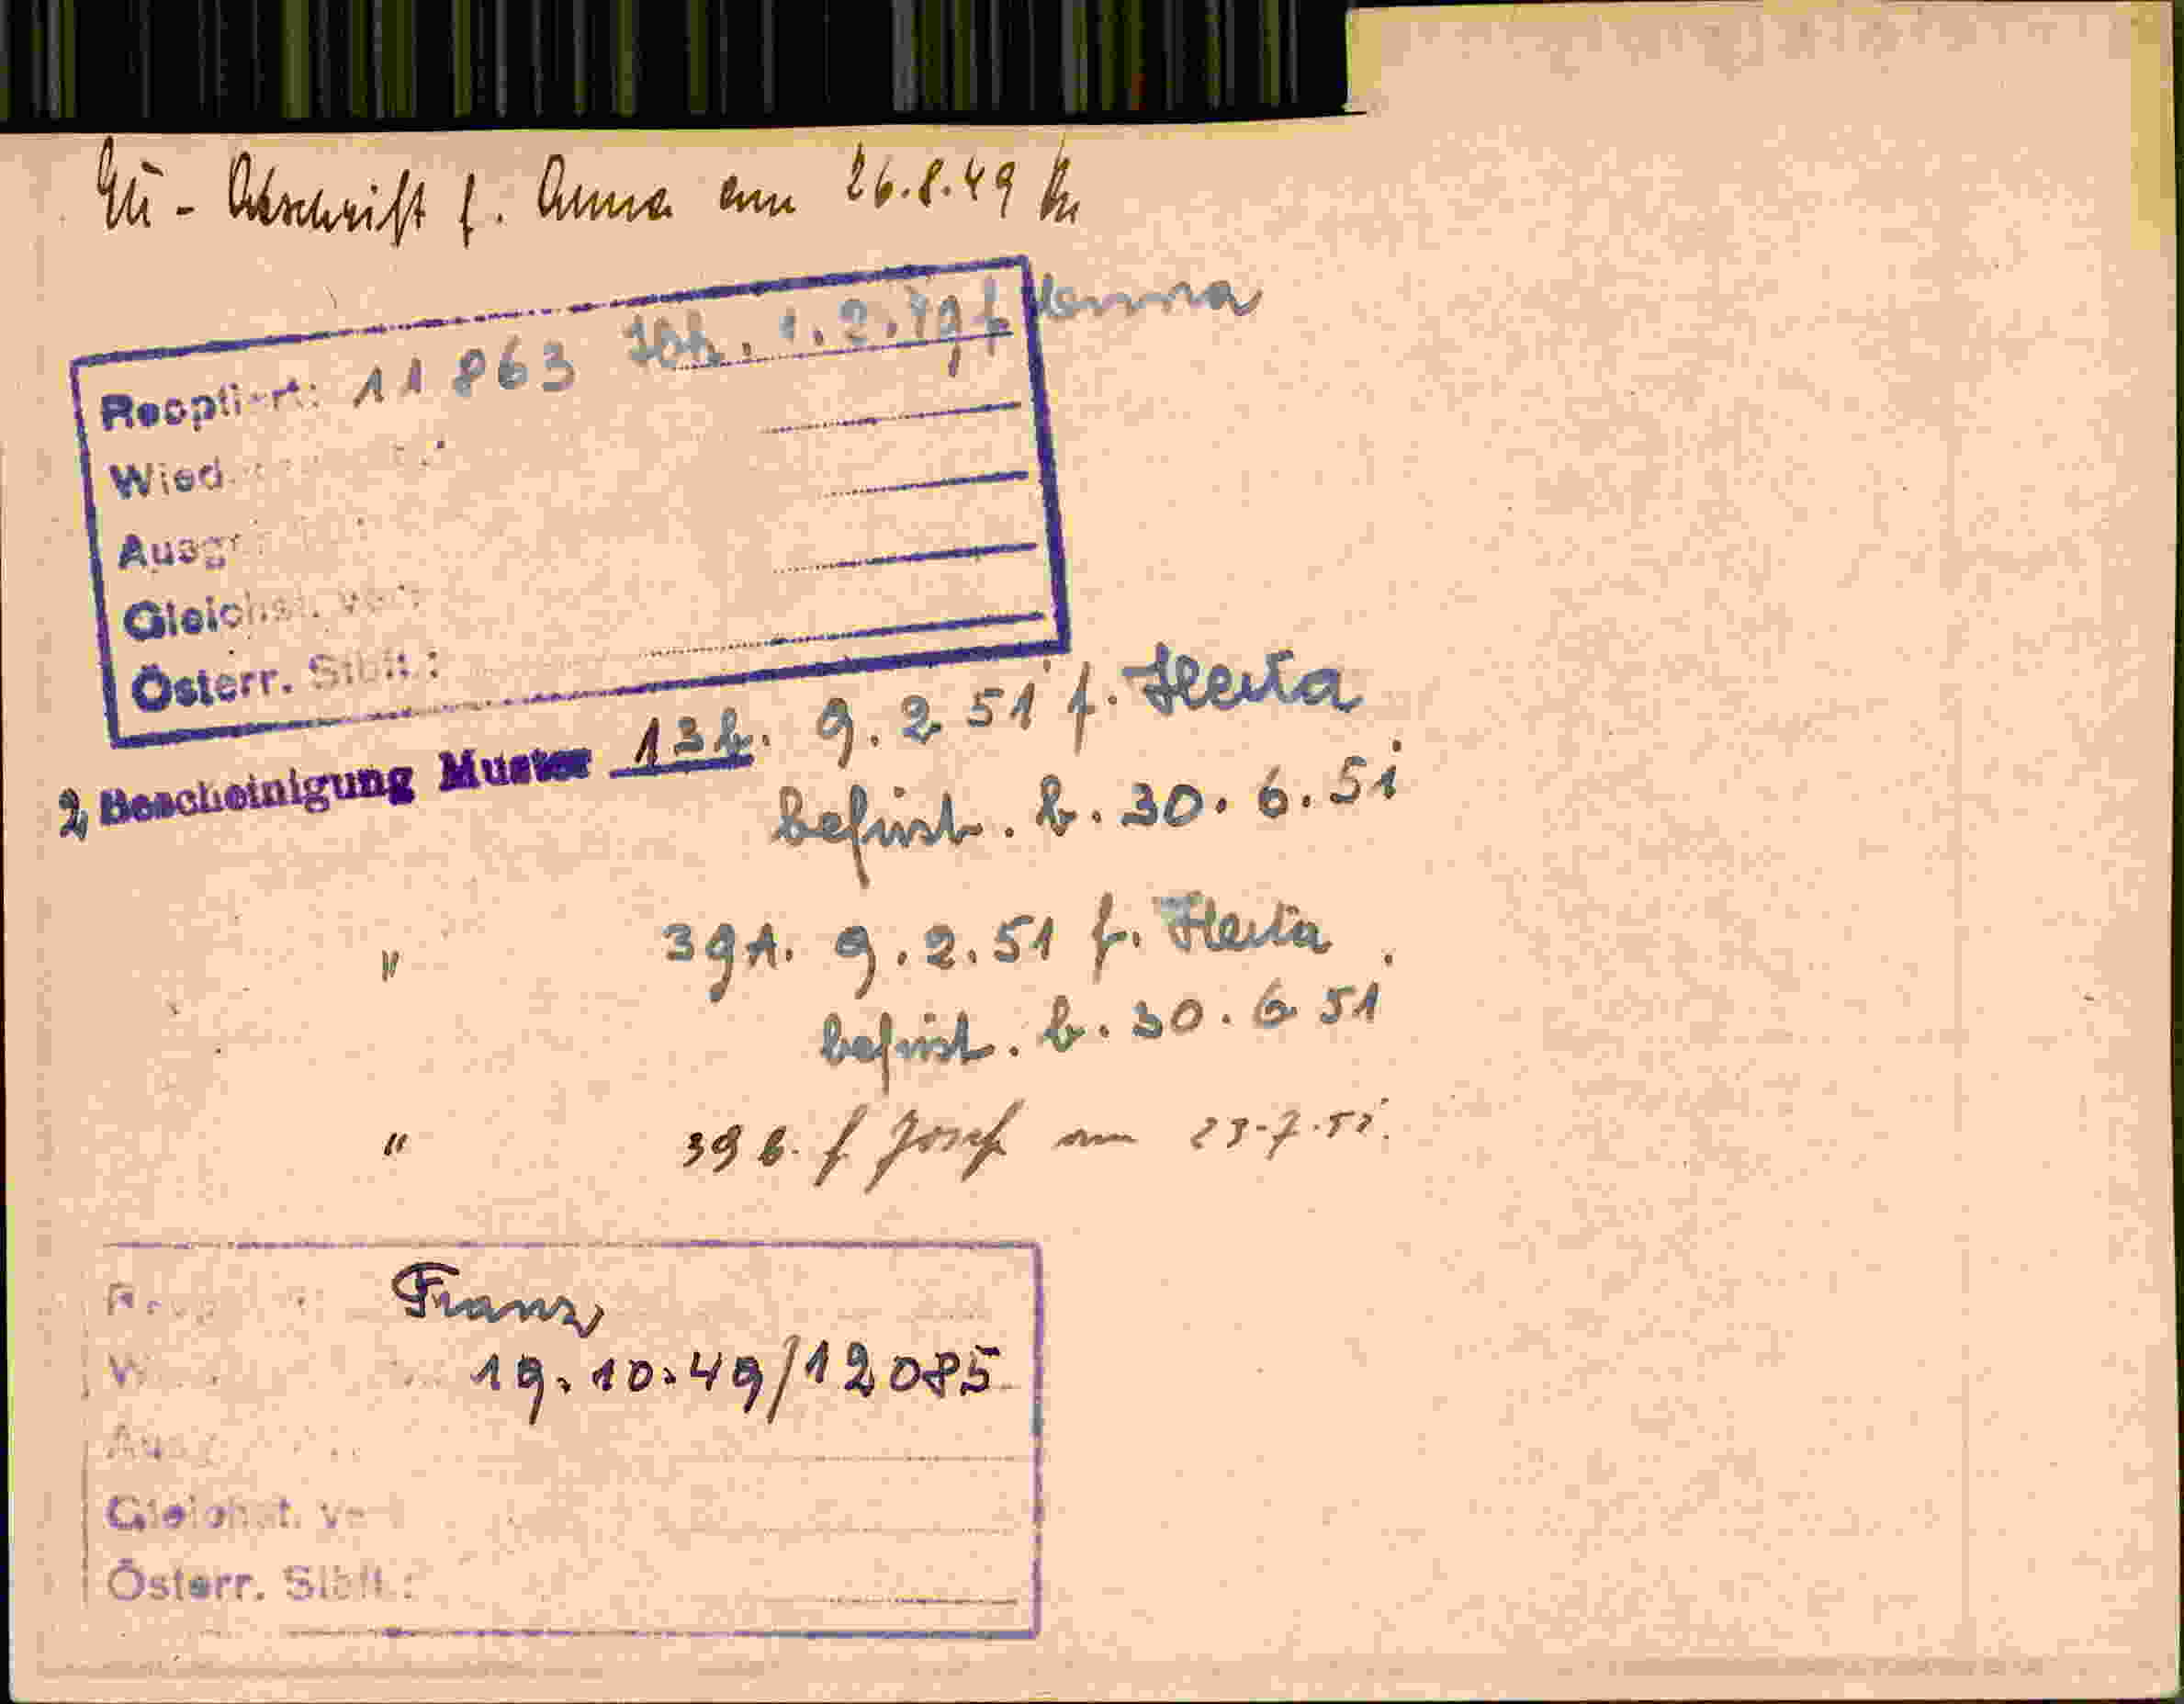 Eü - Abschrift f. Anna am 26.8.49
Reoptiert: 11863 1.2.49 f Anna
Wied.
Ausg
Gleichst. ver
Österr. Stbft.:
2 Bescheinigung Muster 13b. 9.2 51 f. Herta
befrist. b. 30.6.51
" 39A. 9.2.51 f. Herta
befrist. b. 30.6 51
" 39 b. f Josef am 23-7-51.
Franz
19.10.49/12085
Ausg
Gleichst. ver
Österr. Stbft.: